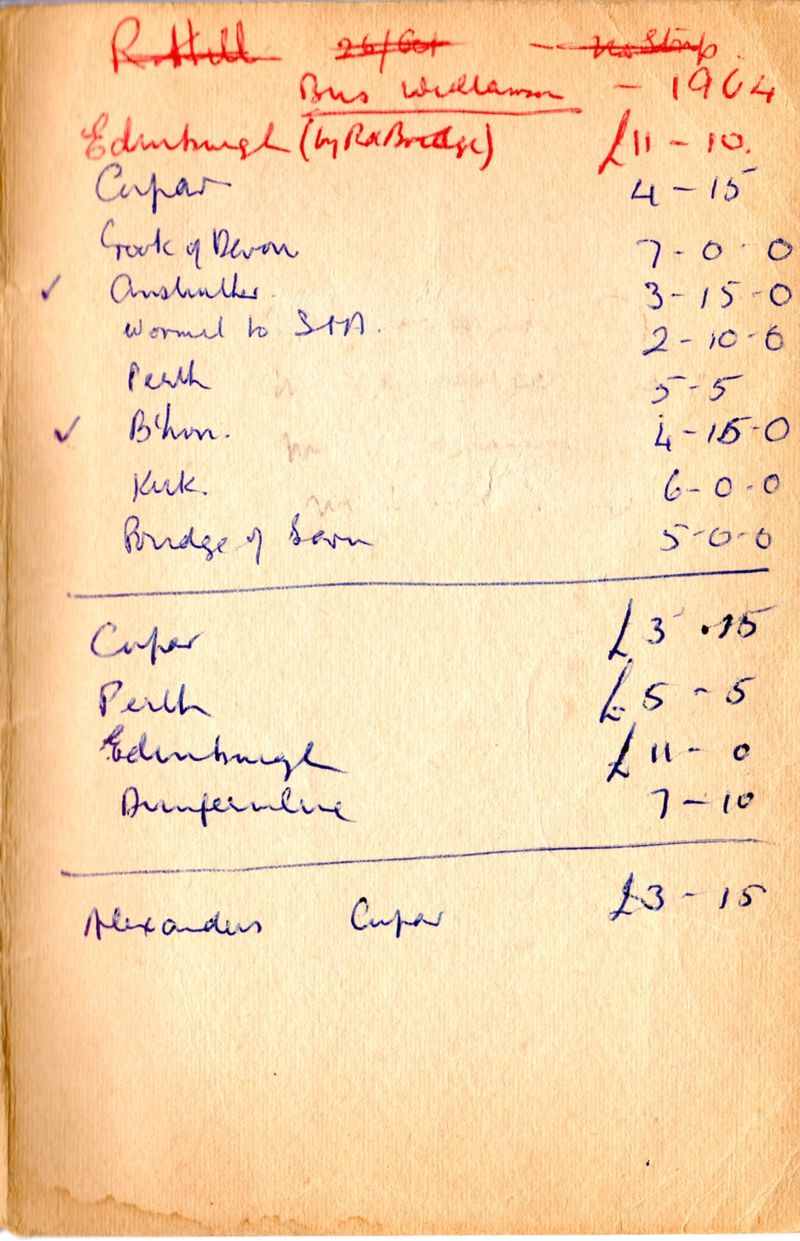 R. Hill 26/Oct - no Strip.
Bus Williamson - 1964
Edinburgh (by Rd Bridge) £11 - 10.
Cupar 4 - 15
Crook of Devon 7 - 0 - 0
✓ Anstruther. 3 - 15 - 0
Wormit to StA. 2 - 10 - 0
Perth 5 - 5
✓ B'hon. 4 - 15 - 0
Kirk. 6 - 0 - 0
Bridge of Earn 5 - 0 - 0
Cupar £3 . 15
Perth £5 - 5
Edinburgh £11 - 0
Dunfermline 7 - 10
Alexanders Cupar £3 - 15